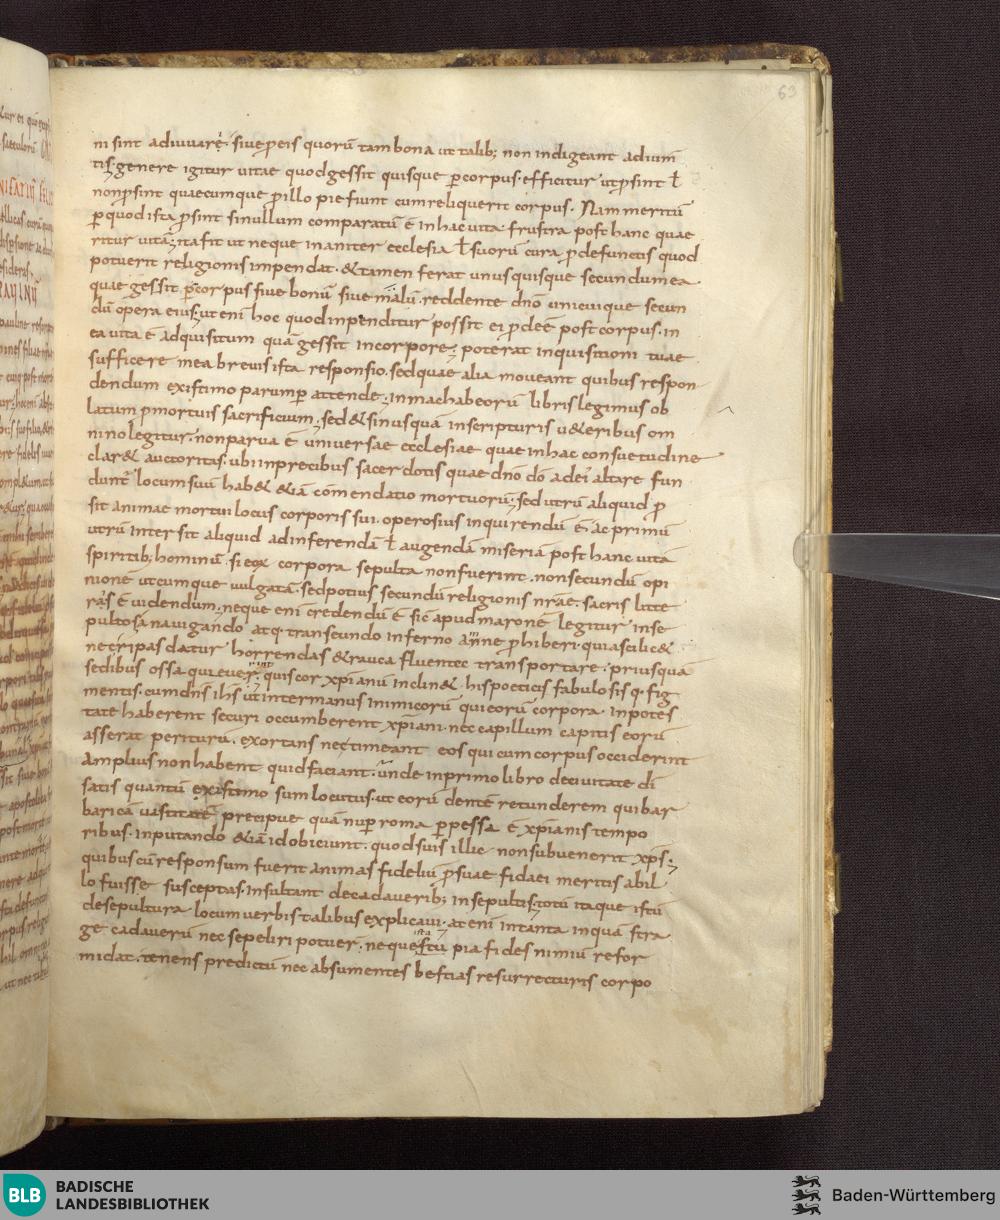 63
ni sint adiuuarę́. siue ꝓeis quorū tam bona ut talib; non indigeant adium
tis; genere igitur uitae quod gessit quisque ꝑ corpus. efficitur ut ꝓsint ł
non ꝓsint quaecumque ꝓ illo pie fiunt cum reliquerit corpus. Nam meritū
ꝑ quod ista ꝓsint si nullum comparatū ē in hac uita frustra post hanc quae
ritur uitā; ita fit ut neque inaniter ecclesia ł suorū cura ꝓ defunctis quod
potuerit religionis impendat. & tamen ferat unus quisque secundum ea
quae gessit ꝑ corpus siue bonū siue malū. reddente dn̄o unicuique secun
dū opera eius; ut enī hoc quod inpenditur possit ei ꝓdeē post corpus. in
ea uita ē adquisitum quā gessit in corpore; poterat inquisitioni tuae
sufficere mea breuis ista responsio. sed quae alia moueant quibus respon
dendum existimo parumꝑ attende; in machabeorū libris legimus ob
latum ꝓ mortuis sacrificium; sed & si nusquā in scripturis u&eribus om
nino legitur. non parua ē uniuersae ecclesiae quae in hac consuetudine
clar& auctoritas. ubi in precibus sacerdotis quae dn̄o dō ad ei altare fun
dunt̄ locum suū hab& &iā cōmendatio mortuorū; sed utrū aliquid ꝓ
sit animae mortui locus corporis sui. operosius inquirendū ē. ac primū
utrū intersit aliquid ad inferendā ł augendā miseriā post hanc uitā
spiritib; hominū. si eoꝝ corpora sepulta non fuerint. non secundū opi
nionē utcumque uulgatā. sed potius secundū religionis nr̄ae. sacris litte
ras ē uidendum. neque enī credendū ē sic apud maronē legitur inse
pultos ā nauigando atq. transeundo inferno amne ꝓhiberi. quia scilic&
nec ripas datur horrendas & rauca fluentec transportare. priusquā
sedibus ossa quieuer̄. quis cor xp̄ianū inclin& his poeticis fabulosis q. fig
mentis. cum dn̄s ih̄s ut inter manus inimicorū qui eorū corpora in potes
tate haberent securi occumberent xp̄iani. nec capillum capitis eorū
asserat periturū. exortans nec timeant eos qui cum corpus occiderint
amplius non habent quid faciant. unde in primo libro de ciuitate dī
satis quantū existimo sum locutus. ut eorū dentē retunderem qui bar
baricā uastitatē precipue quā nuꝑ roma ꝑpessa ē xp̄ianis tempo
ribus. inputando &iā id obiciunt. quod suis illic non subuenerit xp̄s;
quibus cū responsum fuerit animas fideliū ꝓ suae fidaei meritis ab il
lo fuisse susceptas. insultant de cadauerib; insepultis; totū itaque istū
de sepultura locum uerbis talibus explicaui. at enī in tanta inquā stra
ge cadauerū nec sepeliri potuer̄. neque istū pia fides nimiū refor
midat. tenens predictū nec absumentes bestias resurrecturis corpo
BLB
BADISCHE
LANDESBIBLIOTHEK
Baden-Württemberg